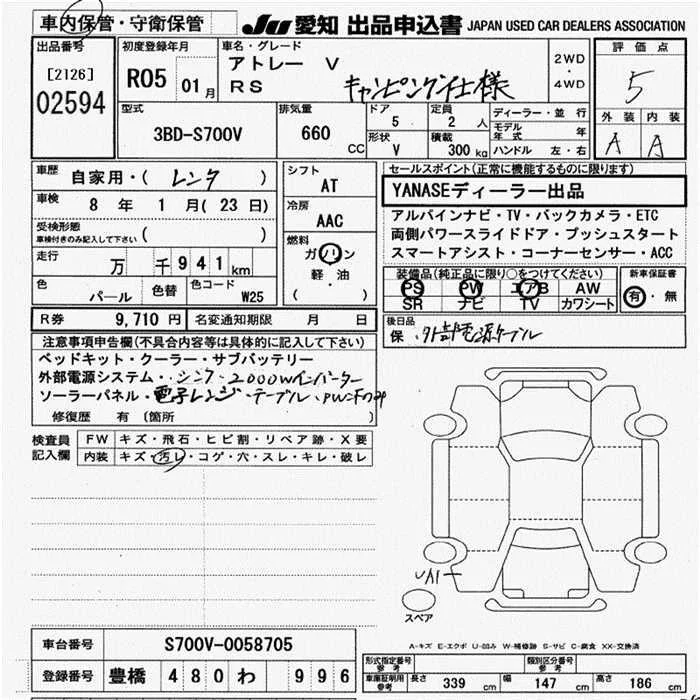 車内保管・守衛保管
JU 愛知 出品申込書 JAPAN USED CAR DEALERS ASSOCIATION
出品番号
[2126]
02594
初度登録年月
R05 01月
車名・グレード
アトレー V
RS
キャンピング仕様
2WD
・
4WD
評価点
5
外装 内装
A A
型式
3BD-S700V
排気量
660 CC
ドア
5
形状
V
定員
2 人
積載
300 kg
ディーラー・並行
モデル年式 年
ハンドル 左・右
車歴
自家用・( レンタ )
車検
8 年 1 月( 23 日)
受検形態
車検付きのみ記入して下さい ( )
走行
万 千941km
色
パール
色替
色コード
W25
シフト
AT
冷房
AAC
燃料
ガソリン
軽・油
( )
R券 9,710 円 名変通知期限 月 日
セールスポイント(正常に機能するものに限ります)
YANASEディーラー出品
アルパインナビ・TV・バックカメラ・ETC
両側パワースライドドア・プッシュスタート
スマートアシスト・コーナーセンサー・ACC
装備品(純正品に限り○をつけてください)
PS PW エアB AW
SR ナビ TV カワシート
新車保証書
有・無
後日品
保 外部電源ケーブル
注意事項申告欄(不具合内容等は具体的に記入して下さい)
ベッドキット・クーラー・サブバッテリー
外部電源システム・シンク・2000Wインバーター
ソーラーパネル・電子レンジ・テーブル・
修復歴 有 〔箇所 〕
検査員
記入欄
FW キズ・飛石・ヒビ割・リペア跡・X要
内装 キズ・汚レ・コゲ・穴・スレ・キレ・破レ
UA1
スペア
A-キズ E-エクボ U-凹み W-補修跡 S-サビ C-腐食 XX-交換済
車台番号 S700V-0058705
登録番号 豊橋 480 わ 996
形式指定番号
参考
類別区分番号
参考
車庫証明用
参考
長さ 339 cm 幅 147 cm 高さ 186 cm